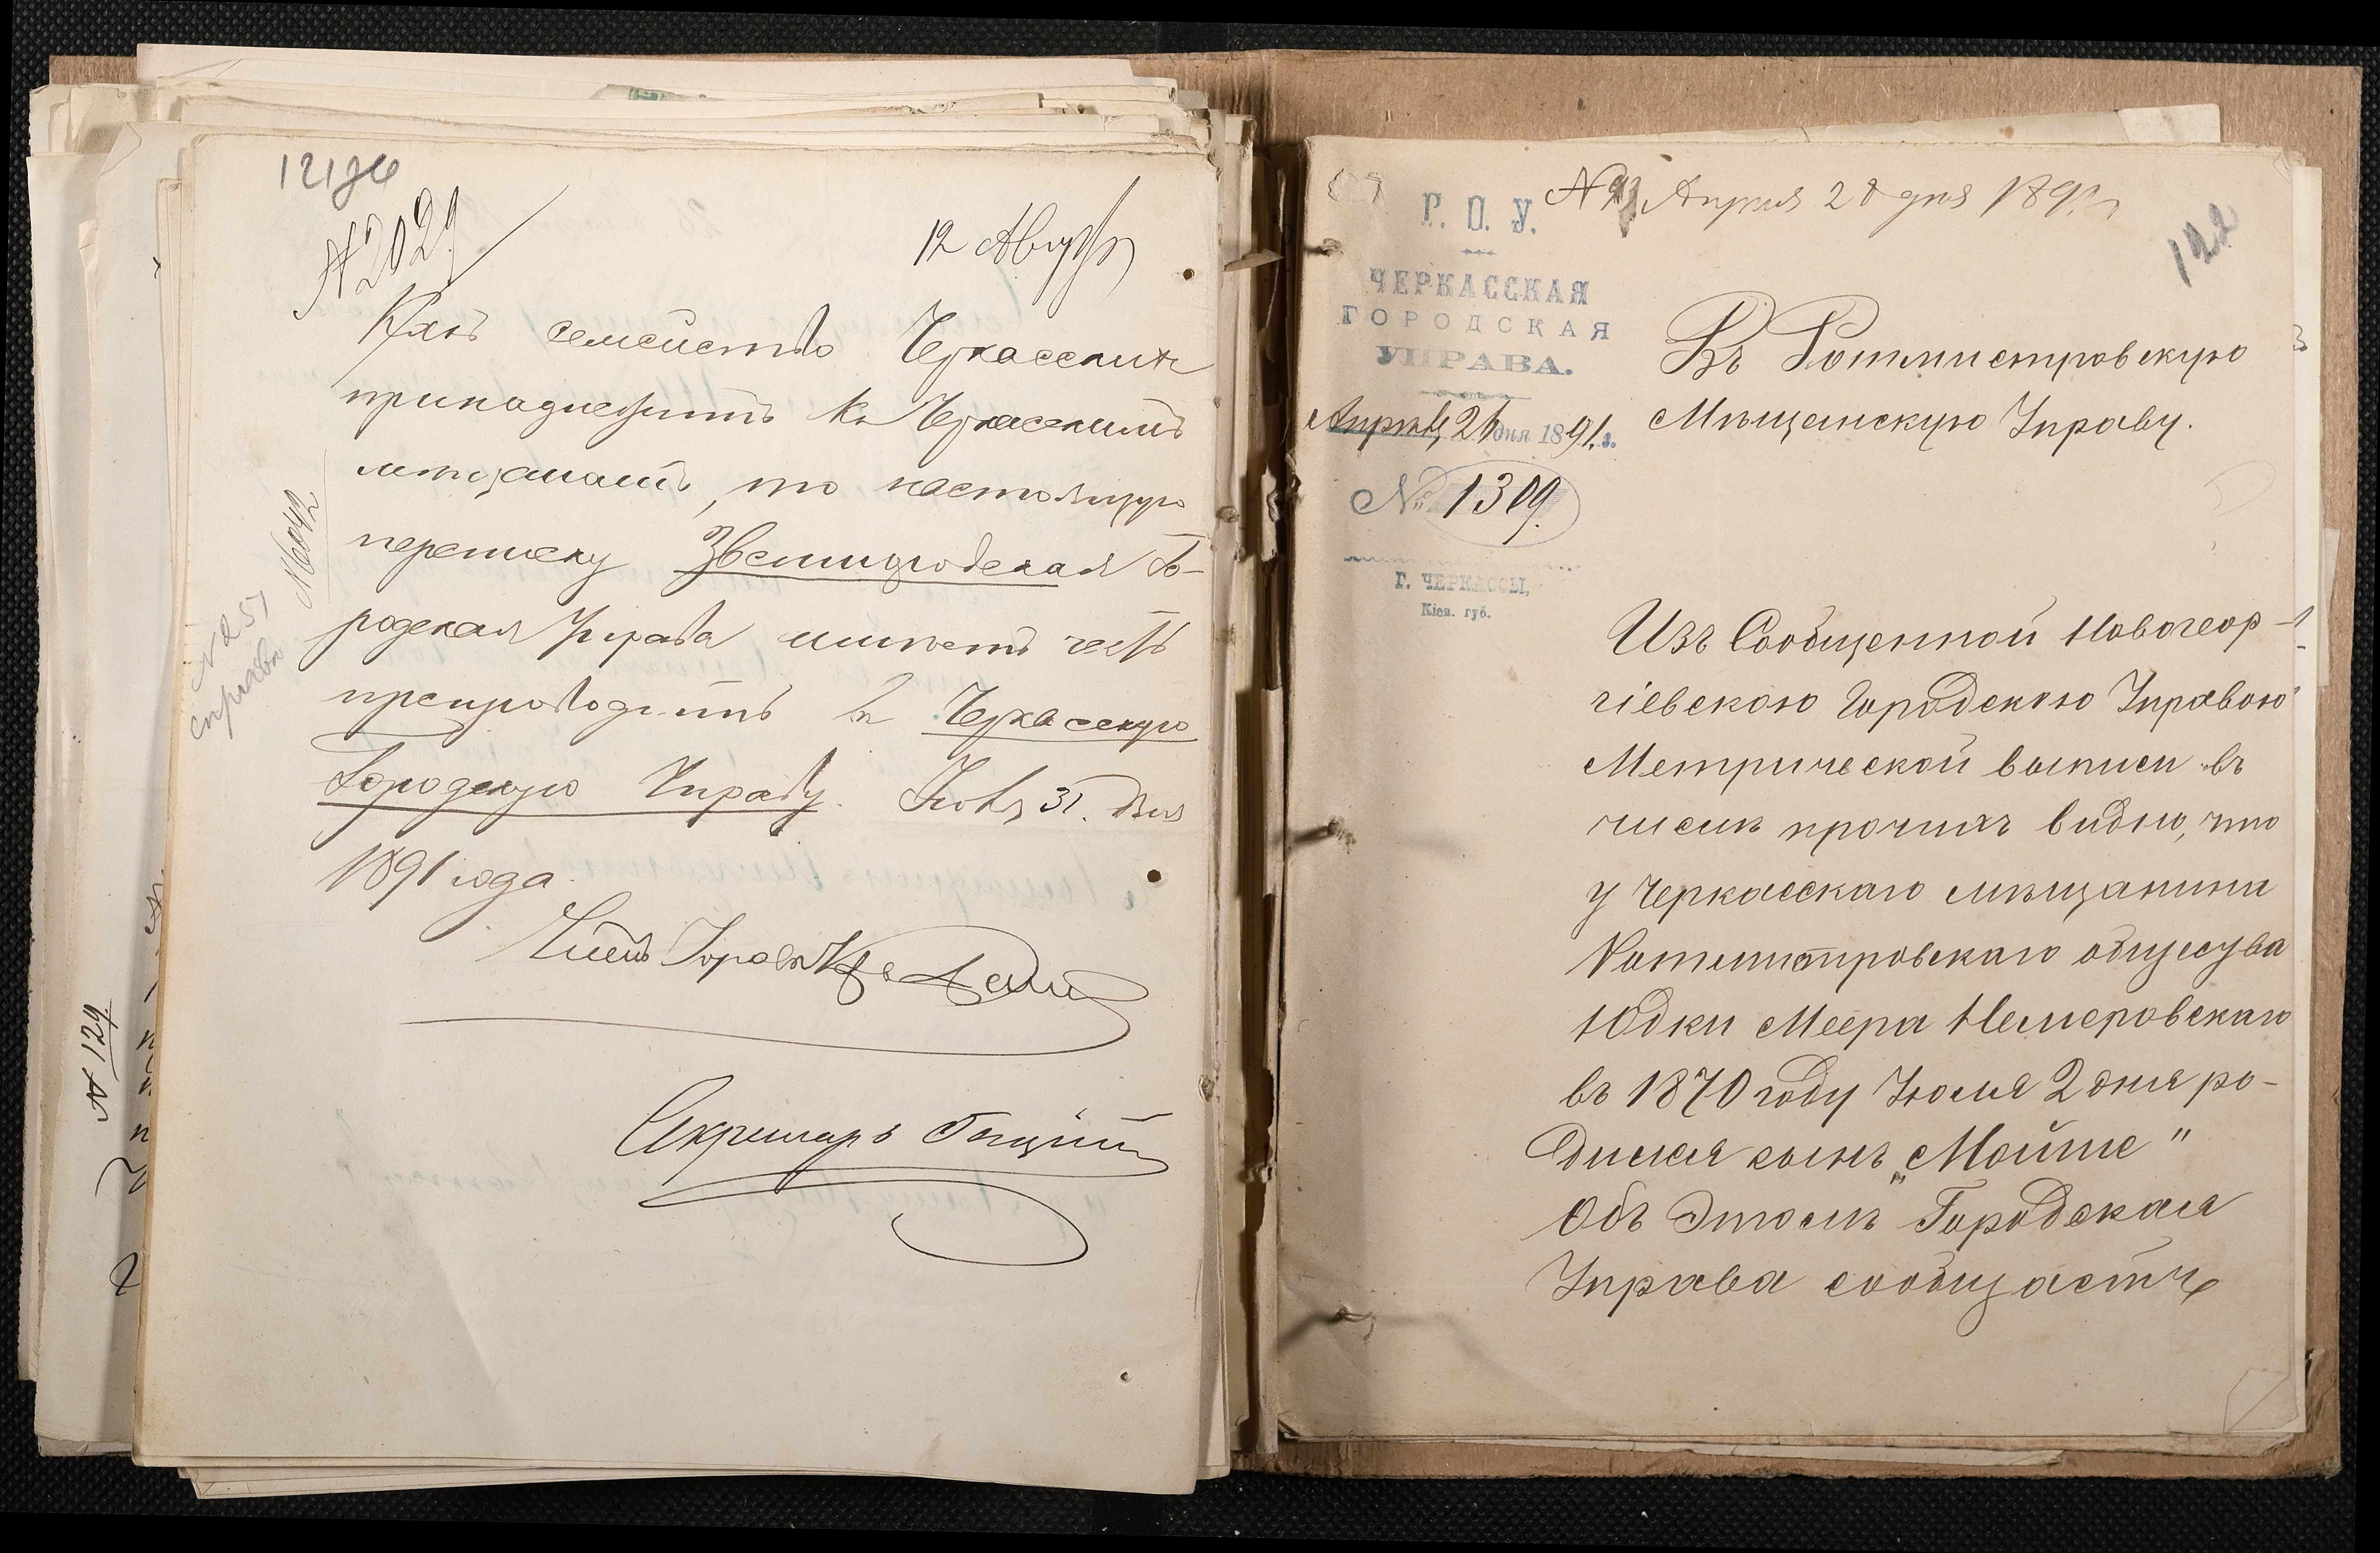 121
№ 2029
12 Августа
Какъ семейство Черкасскихъ
принадлежитъ къ Черкасскимъ
мѣщанамъ, то настоящую
переписку Звенигородская Го-
родская Управа имѣетъ честь
препроводить въ Черкасскую
Городскую Управу. Іюля 31 дня
1891 года.
Членъ Управы
Секретарь
№ 6042
№ 251
справа
№ 129.
Апрѣля 28 дня 1891
122
Г. О. У.
ЧЕРКАССКАЯ
ГОРОДСКАЯ
УПРАВА.
Апрѣля 26 дня 1891 г.
№ 1309.
Г. ЧЕРКАССЫ,
Кіев. губ.
Въ Ротмистровскую
Мѣщанскую Управу.
Изъ Сообщенной Новогеор-
гіевскою Городскою Управою
Метрической выписи въ
числѣ прочихъ видно, что
у Черкасскаго мѣщанина
Ротмистровскаго общества
Юдки Меера Немеровскаго
въ 1870 году Іюля 2 дня ро-
дился сынъ „Мойше"
Объ этомъ Городская
Управа сообщаетъ